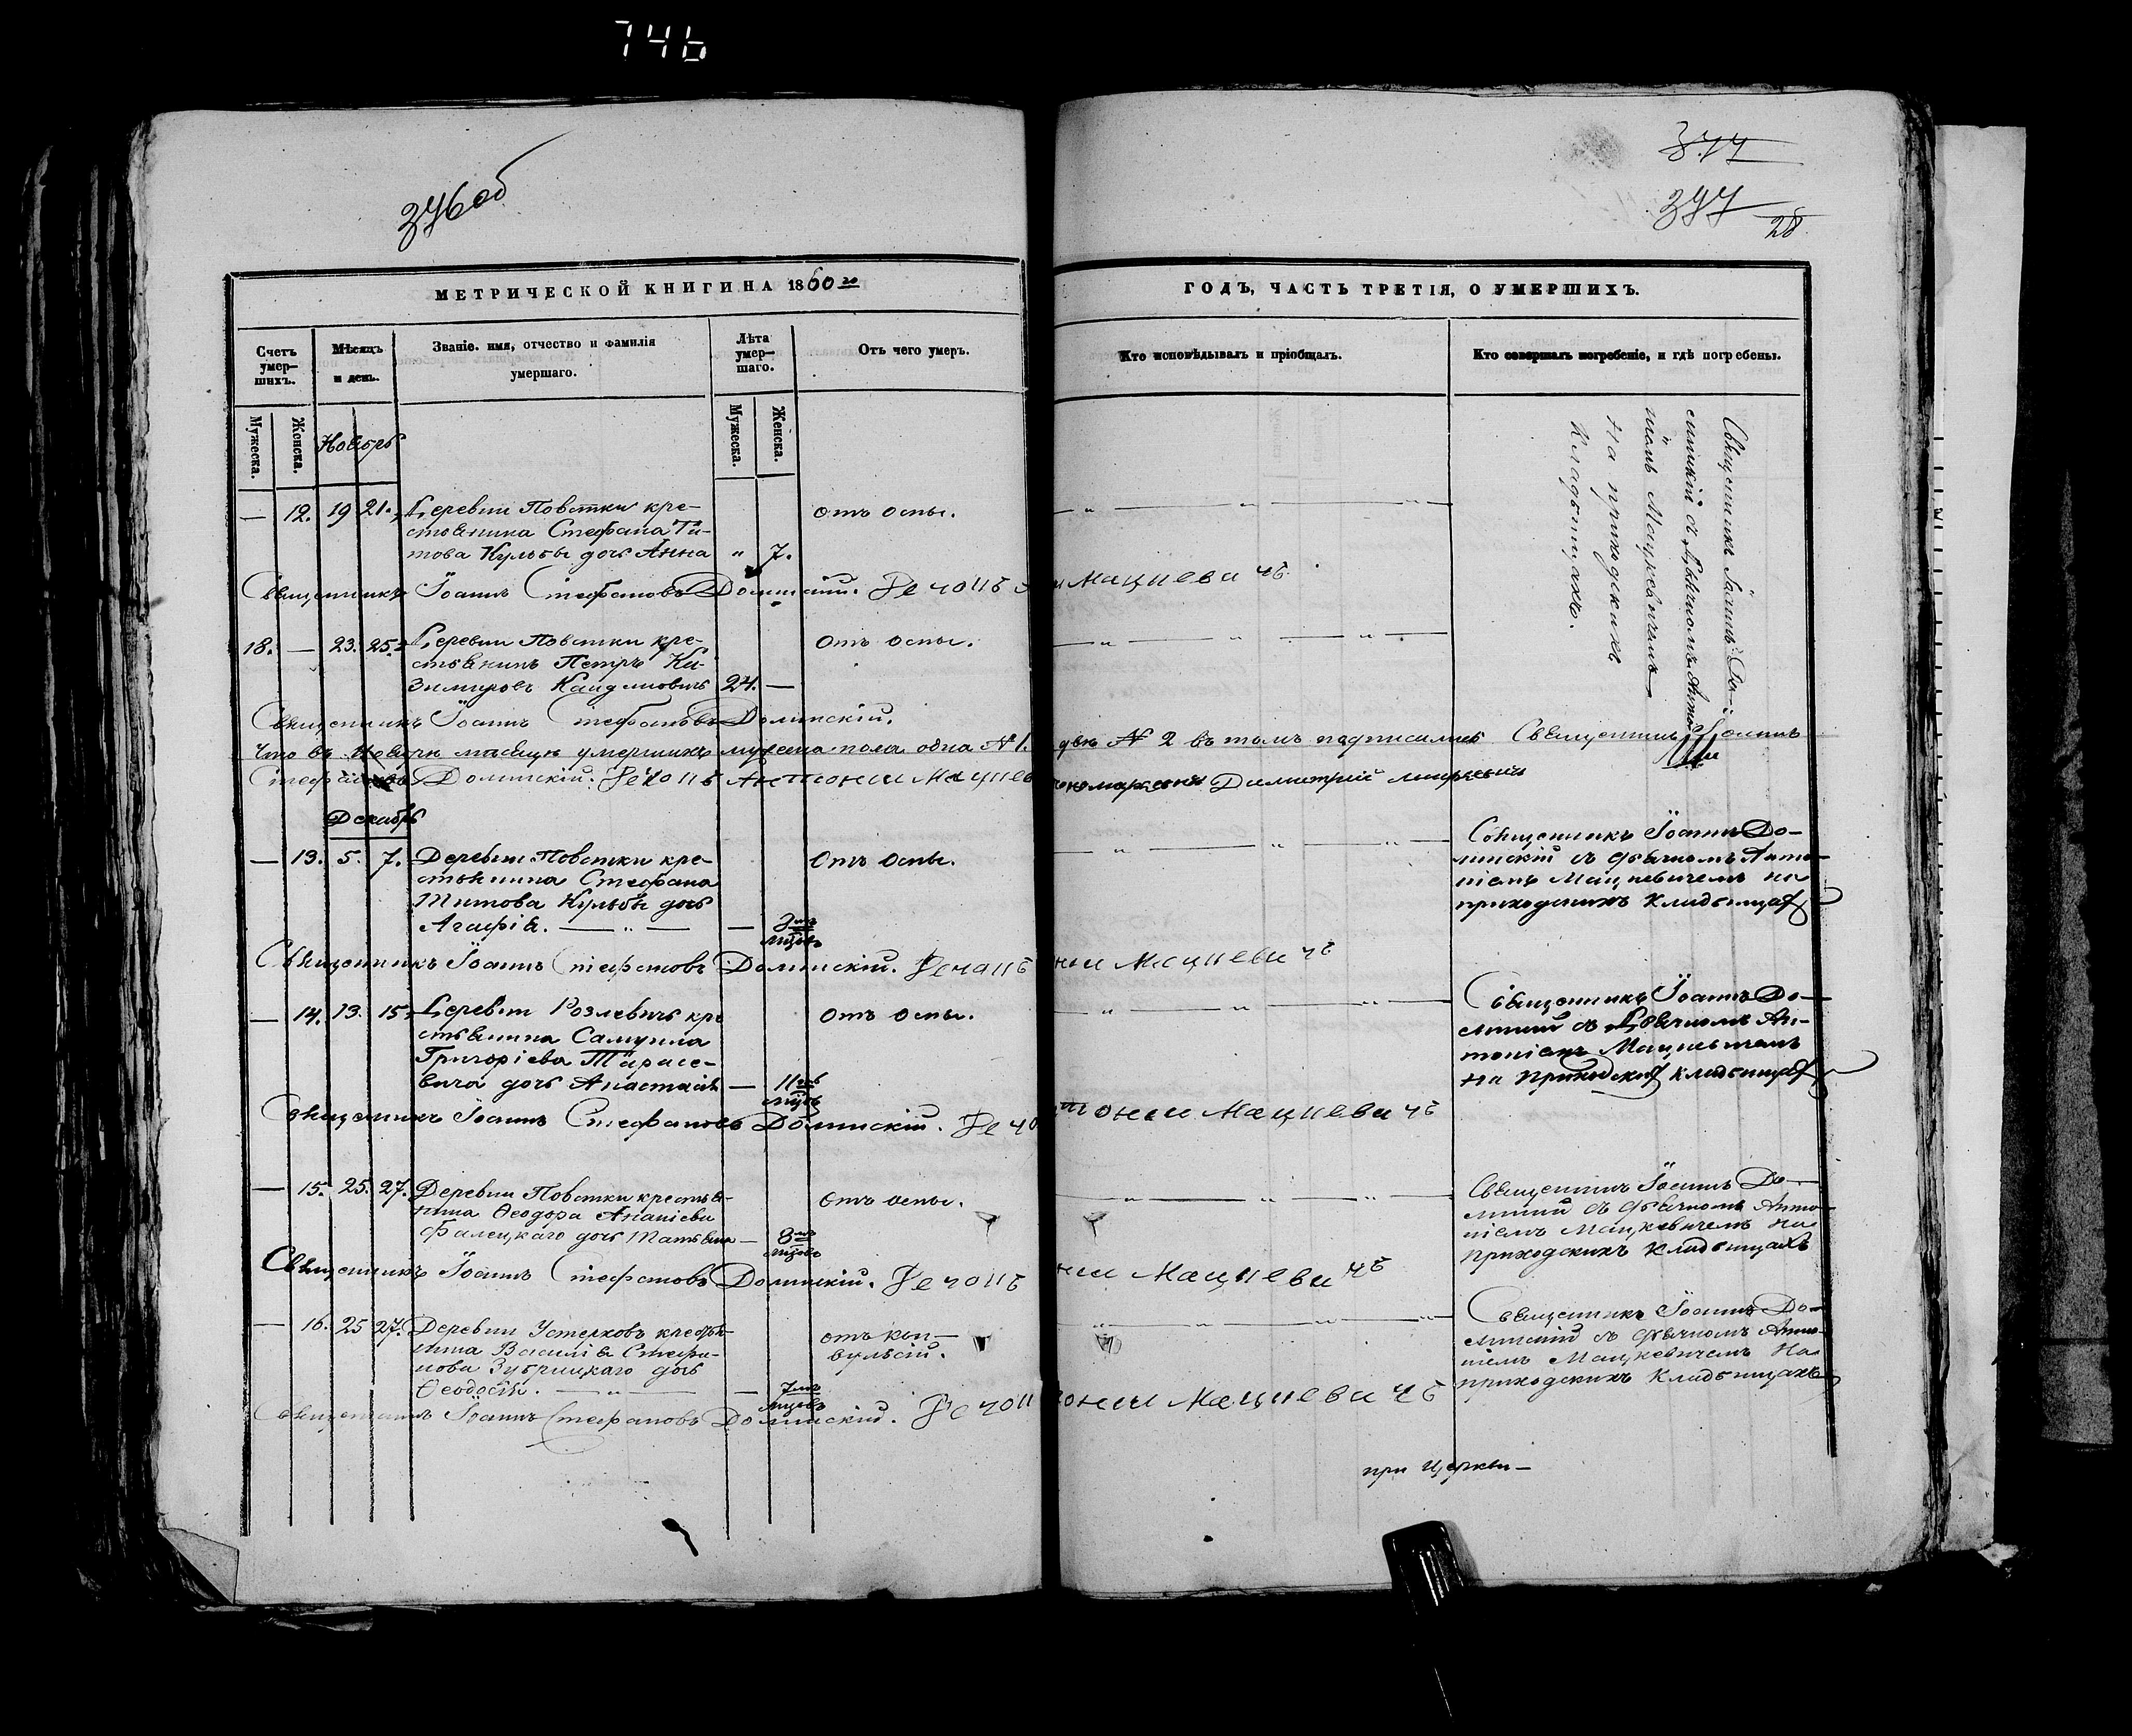 746
376 об
377
377
28
МЕТРИЧЕСКОЙ КНИГИ НА 1860 го
ГОДЪ, ЧАСТЬ ТРЕТІЯ, О УМЕРШИХЪ.
Счетъ умер-шихъ.
Мѣсяцъ и день.
Званіе. имя, отчество и фамилія умершаго.
Лѣта умер-шаго.
Отъ чего умеръ.
Кто исповѣдывалъ и пріобщалъ.
Кто совершалъ погребеніе, и гдѣ погребены.
Мужеска.
Женска.
Мужеска.
Женска.
Ноябрь
— 12. 19 21. Деревни Повстки кре-
стьянина Стефана Ти-
това Кульбы дочь Анна „ 7.
отъ оспы.
Священникъ Іоаннъ До-
линскій съ Дьячкомъ Анто-
ніемъ Мацкевичемъ
на приходскихъ
кладбищахъ.
Священникъ Іоаннъ Стефановъ Долинскій. Мацкевичъ
18. — 23. 25. Деревни Повстки кре-
стьянинъ Петръ Ка-
зимировъ 24. —
отъ оспы.
Священникъ Іоаннъ Стефановъ Долинскій.
Что въ Ноябрѣ мѣсяцѣ умершихъ мужеска пола одна №1. двѣ №2 въ томъ подписались Священникъ Іоаннъ
Стефановъ Долинскій. Антоній Мацкев Димитрій
Декабрь
— 13. 5. 7. Деревни Повстки кре-
стьянина Стефана
Титова Кульбы дочь
Агафія. — „ — — 3 мѣ
мцовъ
Отъ оспы.
Священникъ Іоаннъ До-
линскій съ дьячкомъ Анто-
ніемъ Мацкевичемъ на
приходскихъ кладбищахъ
Священникъ Іоаннъ Стефановъ Долинскій. ній Мацкевичъ
— 14. 13. 15. Деревни кре
стьянина Самуила
Григоріева Тарасе-
вича дочь Анастасія — 11 ть
мцовъ
отъ оспы.
Священникъ Іоаннъ До-
линскій съ Дьячкомъ Ан-
тоніемъ Мацкевичемъ
на приходских кладбищах
Священникъ Іоаннъ Стефановъ Долинскій. тоній Мацкевичъ
— 15. 25. 27. Деревни Повстки крестья-
нина Ѳеодора Ананіева
Фалецкаго дочь Татьяна — 8 мѣ
мцовъ
отъ оспы.
Священникъ Іоаннъ До-
линскій съ дьячкомъ Анто-
ніемъ Мацкевичемъ на
приходскихъ кладбищахъ
Священникъ Іоаннъ Стефановъ Долинскій. ній Мацкевичъ
— 16. 25 27. Деревни Устерховъ крестья-
нина Василія Стефа-
нова Зубрицкаго дочь
Ѳеодосія. — „ — — 7 мѣ
мцовъ
отъ кон-
вульсій.
Священникъ Іоаннъ До-
линскій съ дьячкомъ Анто-
ніемъ Мацкевичемъ на
приходскихъ кладбищахъ
Священникъ Іоаннъ Стефановъ Долинскій. оній Мацкевичъ
при Церкви —